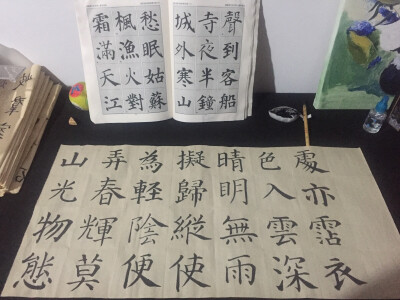 霜滿天江
楓漁火對
愁眠姑蘇
城外寒山
寺夜半鐘
聲到客船
山光物態
弄春輝莫
為輕陰便
擬歸縱使
晴明無雨
色入雲深
處亦霑衣